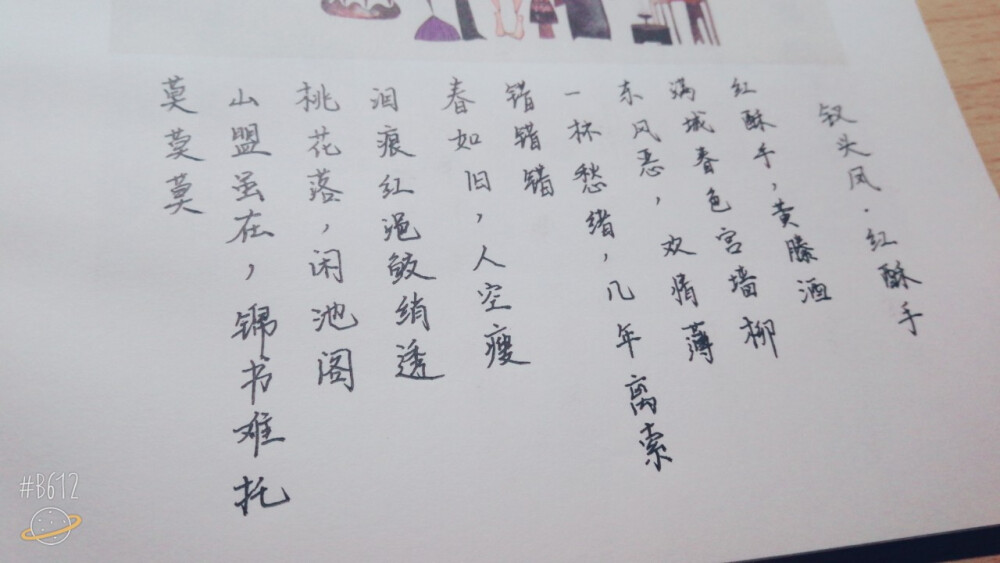 钗头凤·红酥手
红酥手，黄滕酒
满城春色宫墙柳
东风恶，欢情薄
一杯愁绪，几年离索
错错错
春如旧，人空瘦
泪痕红浥鲛绡透
桃花落，闲池阁
山盟虽在，锦书难托
莫莫莫
#B612